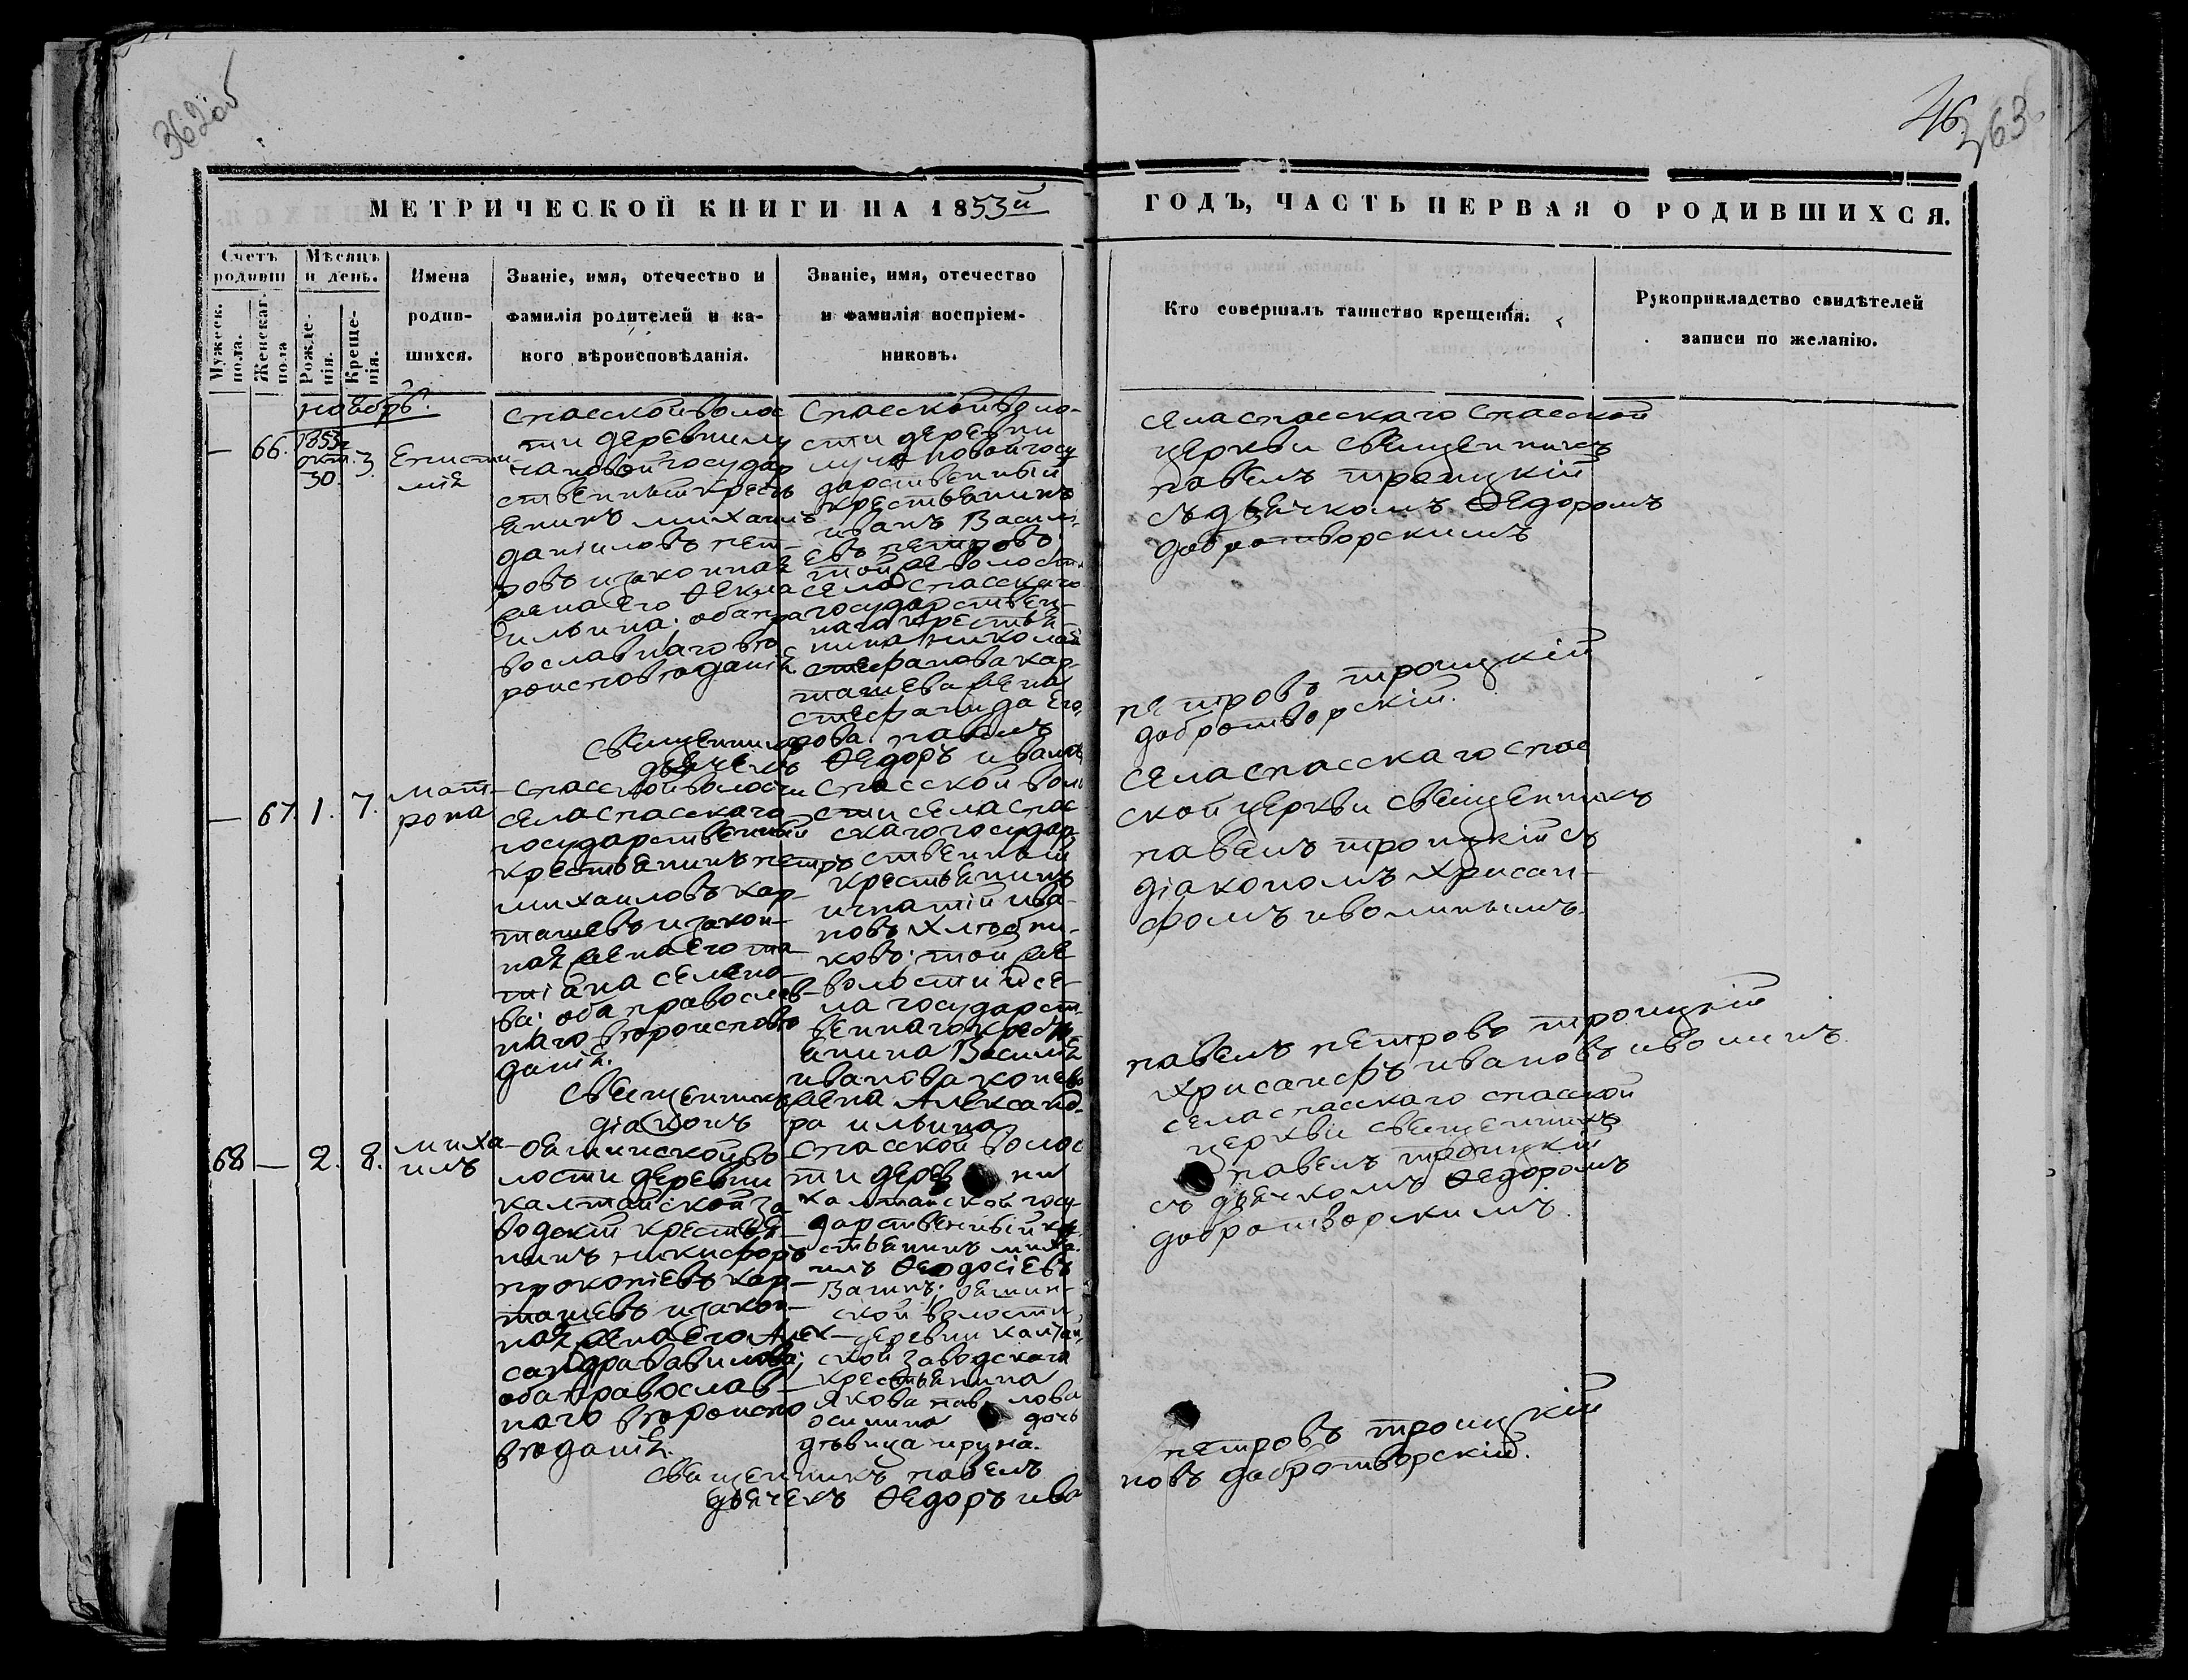 362об
46
363
МЕТРИЧЕСКОЙ КНИГИ НА 1853й
ГОДЪ, ЧАСТЬ ПЕРВАЯ О РОДИВШИХСЯ.
Счетъ
родивш
Мужеск.
пола.
Женскаг.
пола
Мѣсяцъ
и день.
Рожде-
нія.
Креще-
нія.
Имена
родив-
шихся.
Званіе, имя, отечество и
фамилія родителей и ка-
кого вѣроисповѣданія.
Званіе, имя, отечество
и фамилія воспріем-
никовъ.
Кто совершалъ таинство крещенія.
Рукоприкладство свидѣтелей
записи по желанію.
ноябрь.
— 66.
1853
окт.
30.
3.
Еписти
мія
спасской волос
ти деревни лу
чановой государ
ственный кресть
янинъ михаилъ
даніиловъ пет-
ровъ и законная
жена его Ѳекла
ильина; оба пра
вославнаго вѣ
роисповѣданія
спасской воло-
сти деревни
лучановой госу
дарственный
крестьянинъ
иванъ Васил
евъ петровъ
той же волости
села спасскаго
государствен-
наго крестья
нина николая
стефанова кар-
ташева жена
стефанида его
рова.
села спасскаго спасской
церкви священникъ
павелъ троицкій
съ дьячкомъ Ѳедоромъ
добротворскимъ
священникъ павелъ
петровъ троицкій
дьячекъ Ѳедоръ иванов
добротворскій.
— 67. 1. 7.
мат-
рона
спасской волости
села спасскаго
государственный
крестьянинъ петръ
михаиловъ кар-
ташевъ и закон-
ная жена его та-
тіана семено-
ва; оба православ-
наго вѣроисповѣ
данія.
спасской воло
сти села спас
скаго государ
ственный
крестьянинъ
игнатій ива-
новъ хлѣбни-
ковъ; той же
волости и се-
ла государст-
веннаго кресть
янина Василія
иванова конев
жена Александ-
ра ильина
села спасскаго спас
ской церкви священникъ
павелъ троицкій съ
діакономъ хрисан-
фомъ иволинымъ.
священникъ
павелъ петровъ троицкій
діаконъ
хрисанфъ ивановъ иволинъ.
68 — 2. 8.
миха
илъ
лости деревни
калтайской за
водскій крестья
нинъ никифоръ
прокопіевъ кар-
ташевъ и закон-
ная жена его Алек-
сандра вавилова;
оба православ-
наго вѣроиспо
вѣданія.
спасской волос
ти дерев ни
калтайской госу
дарственный кре
стьянинъ миха
илъ Ѳеодосіевъ
ской волости
деревни калтай
ской заводскаго
крестьянина
якова павлова
осипина дочь
дѣвица ирина.
села спасскаго спасской
церкви священникъ
павелъ троицкій
съ дьячкомъ Ѳедоромъ
добротворскимъ.
священникъ павелъ
петровъ троицкій
дьячекъ Ѳедоръ ива
новъ добротворскій.